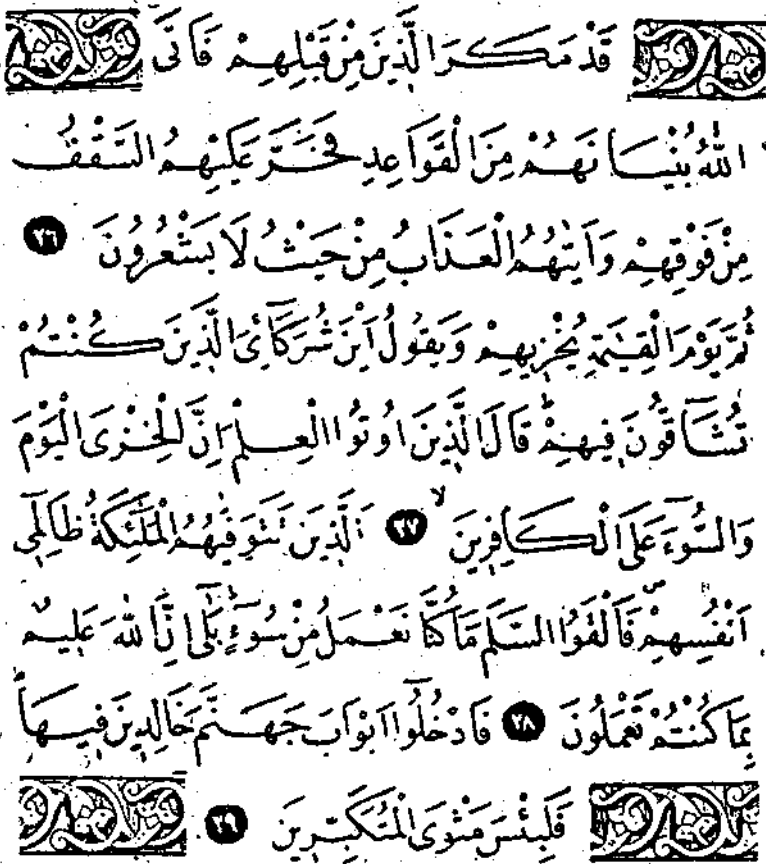 قَدْ مَكَرَ الَّذِينَ مِنْ قَبْلِهِمْ فَاَتَى
اللّٰهُ بُنْيَانَهُمْ مِنَ الْقَوَاعِدِ فَخَرَّ عَلَيْهِمُ السَّقْفُ
مِنْ فَوْقِهِمْ وَاَتٰيهُمُ الْعَذَابُ مِنْ حَيْثُ لَا يَشْعُرُونَ ٢٦
ثُمَّ يَوْمَ الْقِيٰمَةِ يُخْزِيهِمْ وَيَقُولُ اَيْنَ شُرَكَٓائِىَ الَّذِينَ كُنْتُمْ
تُشَٓاقُّونَ فِيهِمْۜ قَالَ الَّذِينَ اُوتُوا الْعِلْمَ اِنَّ الْخِزْىَ الْيَوْمَ
وَالسُّٓوءَ عَلَى الْكَافِرِينَۙ ٢٧ اَلَّذِينَ تَتَوَفّٰيهُمُ الْمَلٰٓئِكَةُ ظَالِمِٓى
اَنْفُسِهِمْۖ فَاَلْقَوُا السَّلَمَ مَا كُنَّا نَعْمَلُ مِنْ سُٓوءٍۜ بَلٰٓى اِنَّ اللّٰهَ عَلِيمٌ
بِمَا كُنْتُمْ تَعْمَلُونَ ٢٨ فَادْخُلُٓوا اَبْوَابَ جَهَنَّمَ خَالِدِينَ فِيهَاۜ
فَلَبِئْسَ مَثْوَى الْمُتَكَبِّرِينَ ٢٩